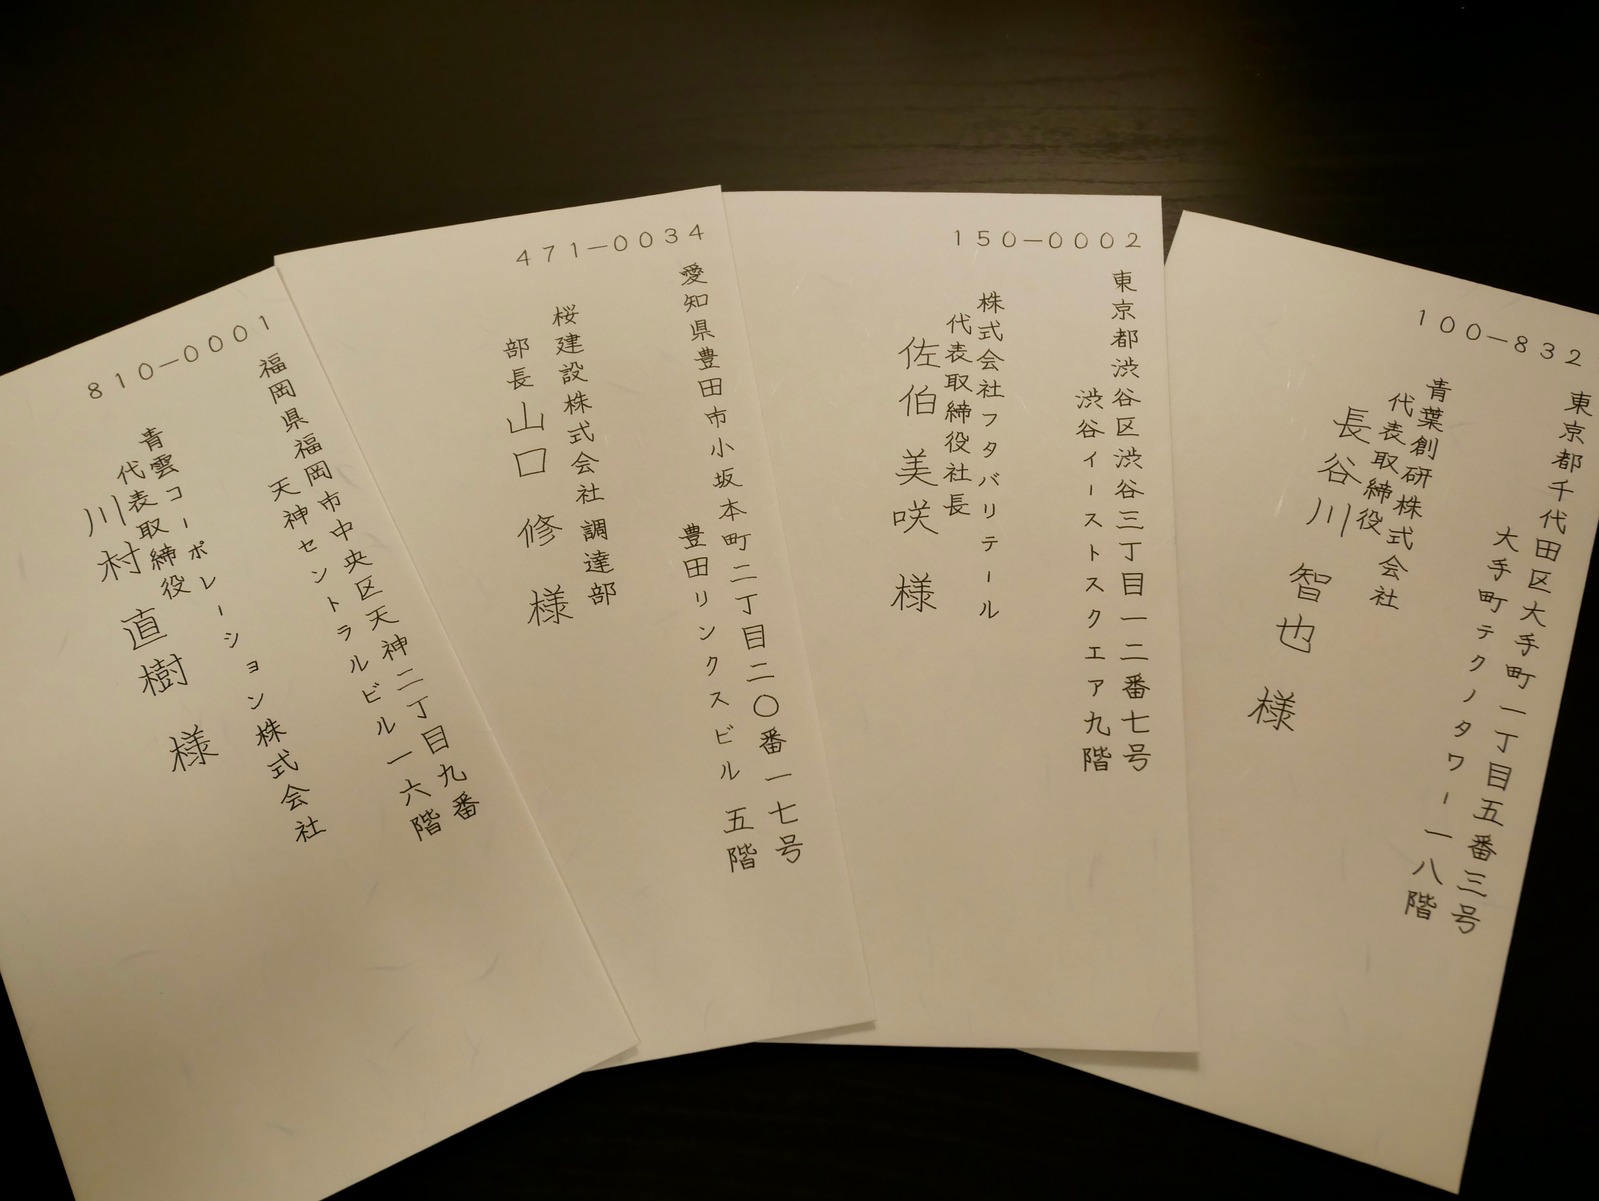 810-0001
福岡県福岡市中央区天神二丁目九番
天神セントラルビル一六階
青雲コーポレーション株式会社
代表取締役
川村 直樹 様
471-0034
愛知県豊田市小坂本町二丁目二〇番一七号
豊田リンクスビル 五階
桜建設株式会社 調達部
部長 山口 修 様
150-0002
東京都渋谷区渋谷三丁目一二番七号
渋谷イーストスクエア九階
株式会社フタバリテール
代表取締役社長
佐伯 美咲 様
100-832
東京都千代田区大手町一丁目五番三号
大手町テクノタワー一八階
青葉創研株式会社
代表取締役
長谷川 智也 様